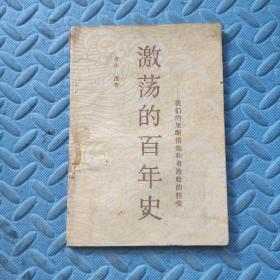 激荡的百年史
我们的果断措施和奇迹般的转变
吉田 茂著